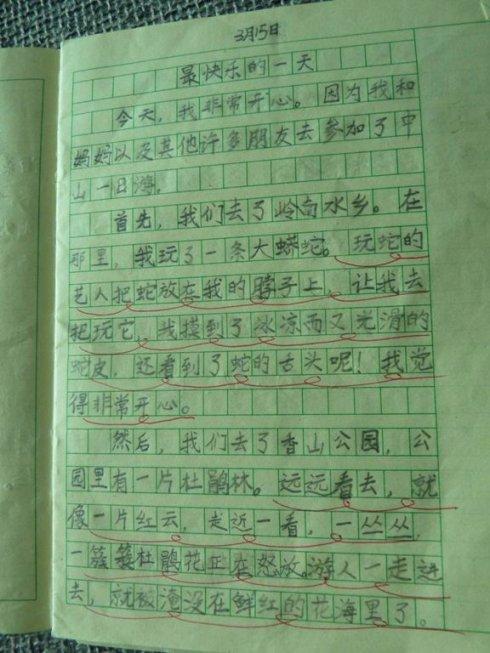 3月15日
最快乐的一天
今天，我非常开心。因为我和
妈妈以及其他许多朋友去参加了中
山一日游。
首先，我们去了岭南水乡。在
那里，我玩了一条大蟒蛇。玩蛇的
艺人把蛇放在我的脖子上，让我去
把玩它，我摸到了冰凉而又光滑的
蛇皮，还看到了蛇的舌头呢！我觉
得非常开心。
然后，我们去了香山公园，公
园里有一片杜鹃林。远远看去，就
像一片红云，走近一看，一丛丛，
一簇簇杜鹃花正在怒放。游人一走进
去，就被淹没在鲜红的花海里了。